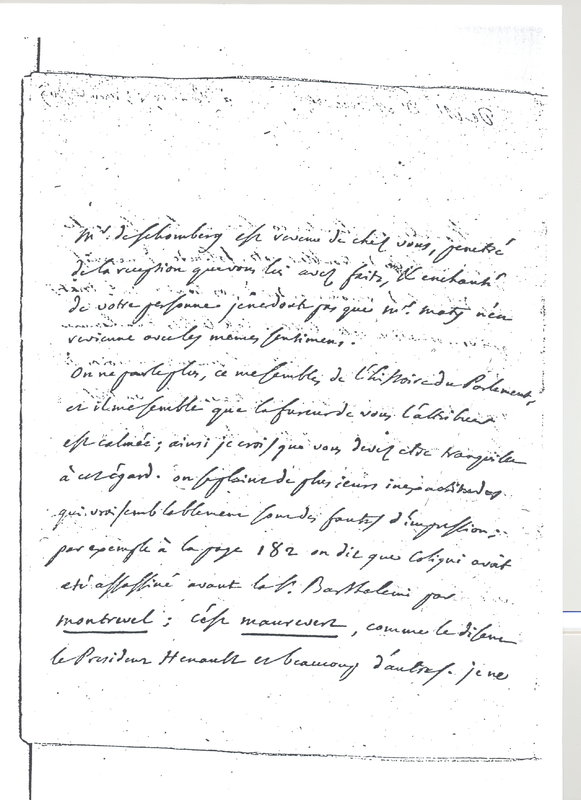 Mr. de Schomberg est revenu de chez vous, penetré
de la reception que vous lui avez faite, & enchanté
de votre personne je ne doute pas que Mr. Maty n'en
revienne avec les mêmes sentimens.
On ne parle plus, ce me semble, de l'histoire du Parlement,
et il me semble que la fureur de vous l'attribuer
est calmée; ainsi je crois que vous devez etre tranquille
à cet égard. on se plaint de plusieurs inexactitudes
qui vraisemblablement sont des fautes d'impression;
par exemple à la page 182 on dit que Coligni avoit
eté assassiné avant la St. Barthelemi par
montrevel; c'est maurevert, comme le disent
le President Henault et beaucoup d'autres. je ne